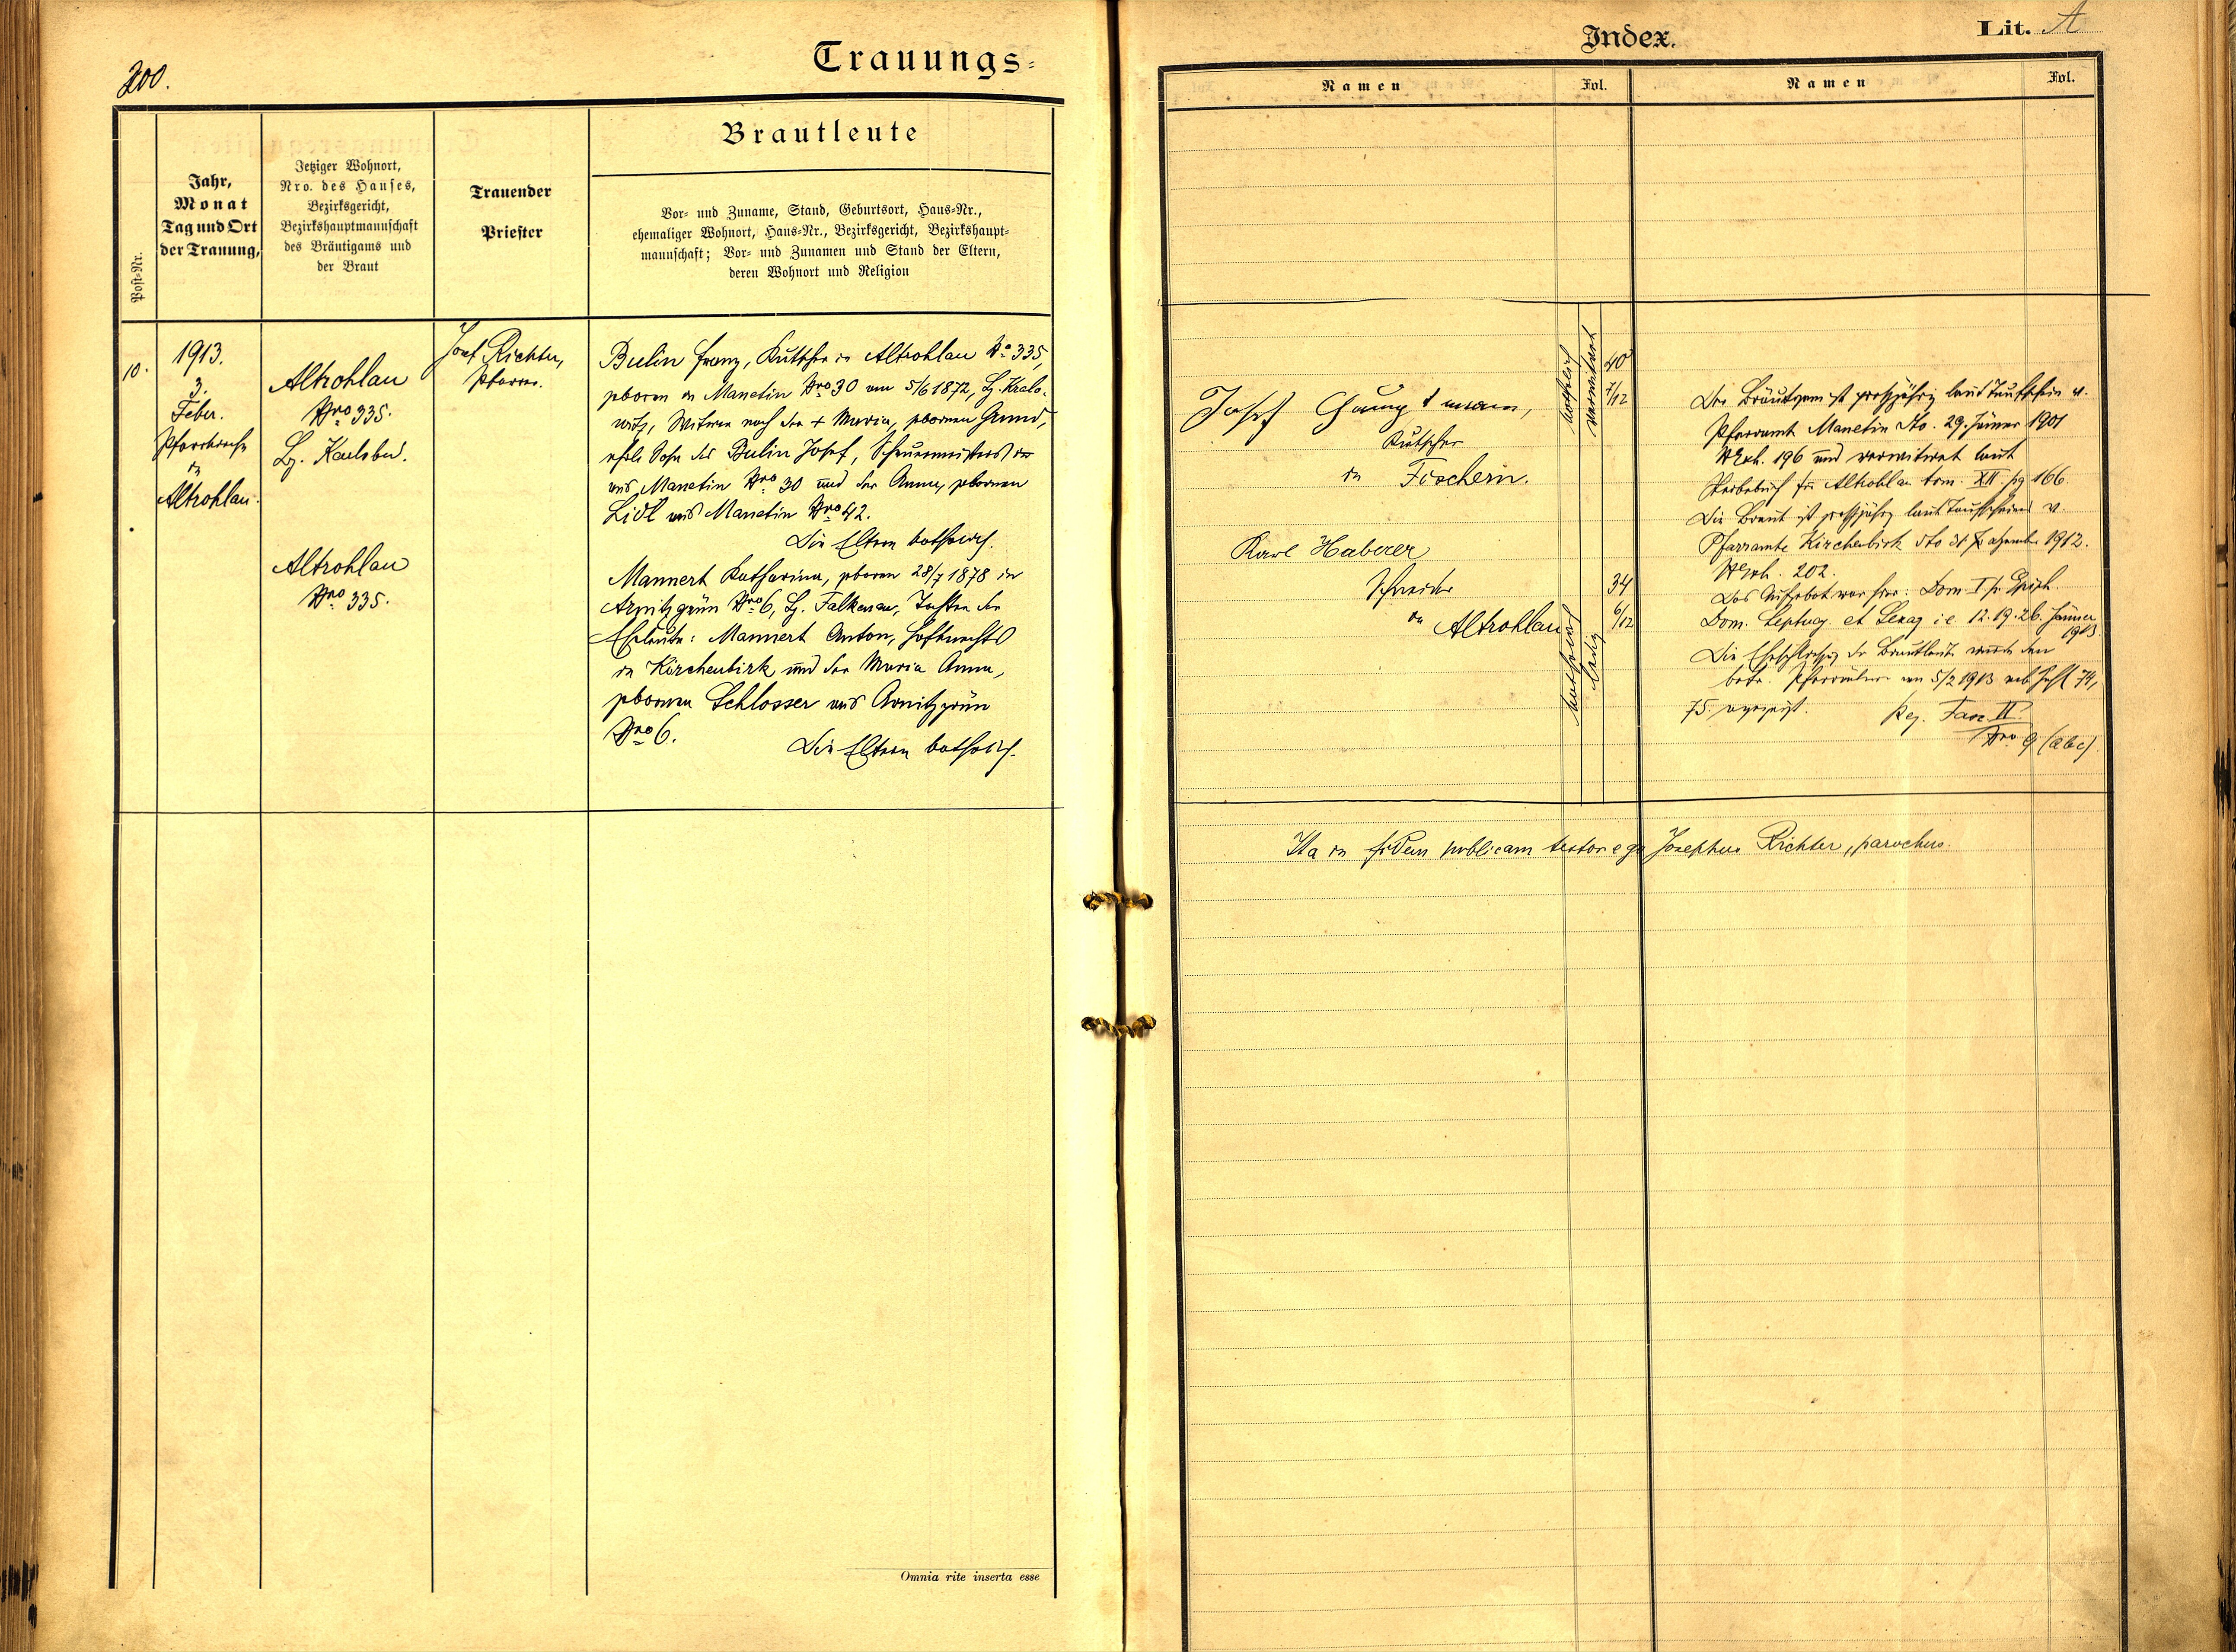 200.
Trauungs-
Post-Nr.
Jahr,
Monat
Tag und Ort
der Trauung,
Jetziger Wohnort,
Nro. des Hauses,
Bezirksgericht,
Bezirkshauptmannschaft
des Bräutigams und
der Braut
Trauender
Priester
Brautleute
Vor- und Zuname, Stand, Geburtsort, Haus-Nr.,
ehemaliger Wohnort, Haus-Nr., Bezirksgericht, Bezirkshaupt-
mannschaft; Vor- und Zunamen und Stand der Eltern,
deren Wohnort und Religion
10.
1913.
3.
Feber.
Pfarrkirche
in
Altrohlau.
Altrohlau
Nro 335.
Bz. Karlsbad.
Altrohlau
Nro 335.
Josef Richter,
Pfarrer.
Bulin Franz, Kutscher in Altrohlau No 335,
geboren in Manetin Nro 30 am 5/6 1872, Bz. Kralo-
witz, Witwer nach der + Maria, gebornen Grund,
ehel. Sohn des Bulin Josef, Scheuermeisters
aus Manetin Nro 30 und der Anna, gebornen
Lidl aus Manetin Nro 42.
Die Eltern katholisch.
Mannert Katharina, geboren 28/7 1878 in
Arnitzgrün Nro 6, Bz. Falkenau, Tochter der
Eheleute: Mannert Anton, Hofknechts
in Kirchenbirk und der Maria Anna,
gebornen Schlosser aus Arnitzgrün
Nro 6.
Die Eltern katholisch.
Omnia rite inserta esse
Index.
Lit. A
Namen
Fol.
Namen
Fol.
Josef Hauptmann,
Kutscher
in Fischern.
katholisch
verwitwet
40
7/12
Karl Haberer
Schneider
in Altrohlau
katholisch
ledig
34
6/12
Der Bräutigam ist großjährig laut Taufschein v.
Pfarramt Manetin dto. 29. Jänner 1901
NExh. 196 und verwitwet laut
Sterbebuch für Altrohlau tom. XII. pg 166.
Die Braut ist großjährig laut Taufscheines v.
Pfarramte Kirchenbirk dto 31 Dezember 1912.
NExh. 202.
Das Aufgebot war hier: Dom. I. p. Epiph.
Dom. Septuag et Sexag i.e. 12. 19. 26. Jänner
1913.
Die Ehe der Brautleute wurde den
Pfarrämtern am 5/2 1913 sub Zahl 74,
75. angezeigt. Reg. Fasc. II.
Nro 9 (abc).
Ita in fidem publicam testor ego Josephus Richter, parochus.